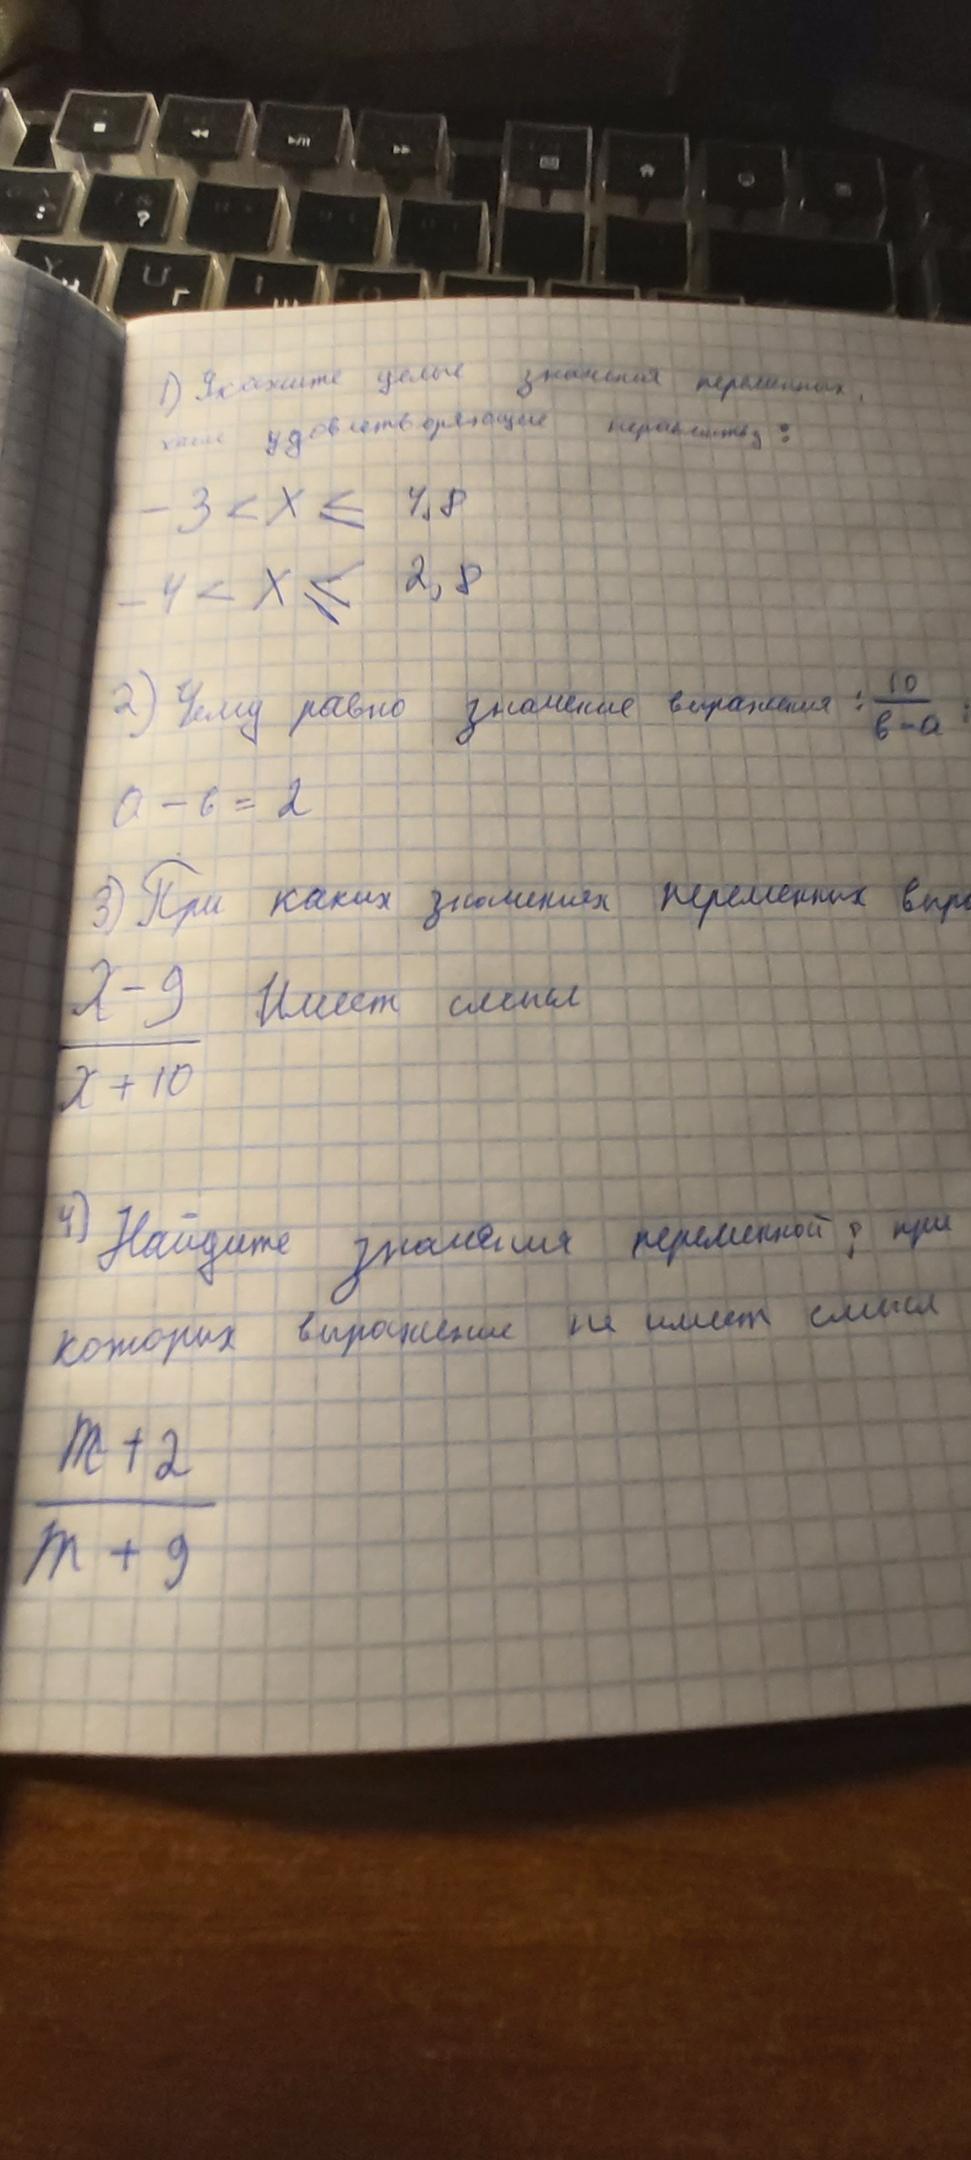 1) Укажите целые значения переменных,
удовлетворяющие неравенству:
-3 < x ≤ 4,8
-4 < x ≤ 2,8
2) Чему равно значение выражения: 10/в-а :
а - в = 2
3) При каких значениях переменных выра
x-9/x+10 Имеет смысл
4) Найдите значения переменной; при
которых выражение не имеет смысл
m+2/m+9